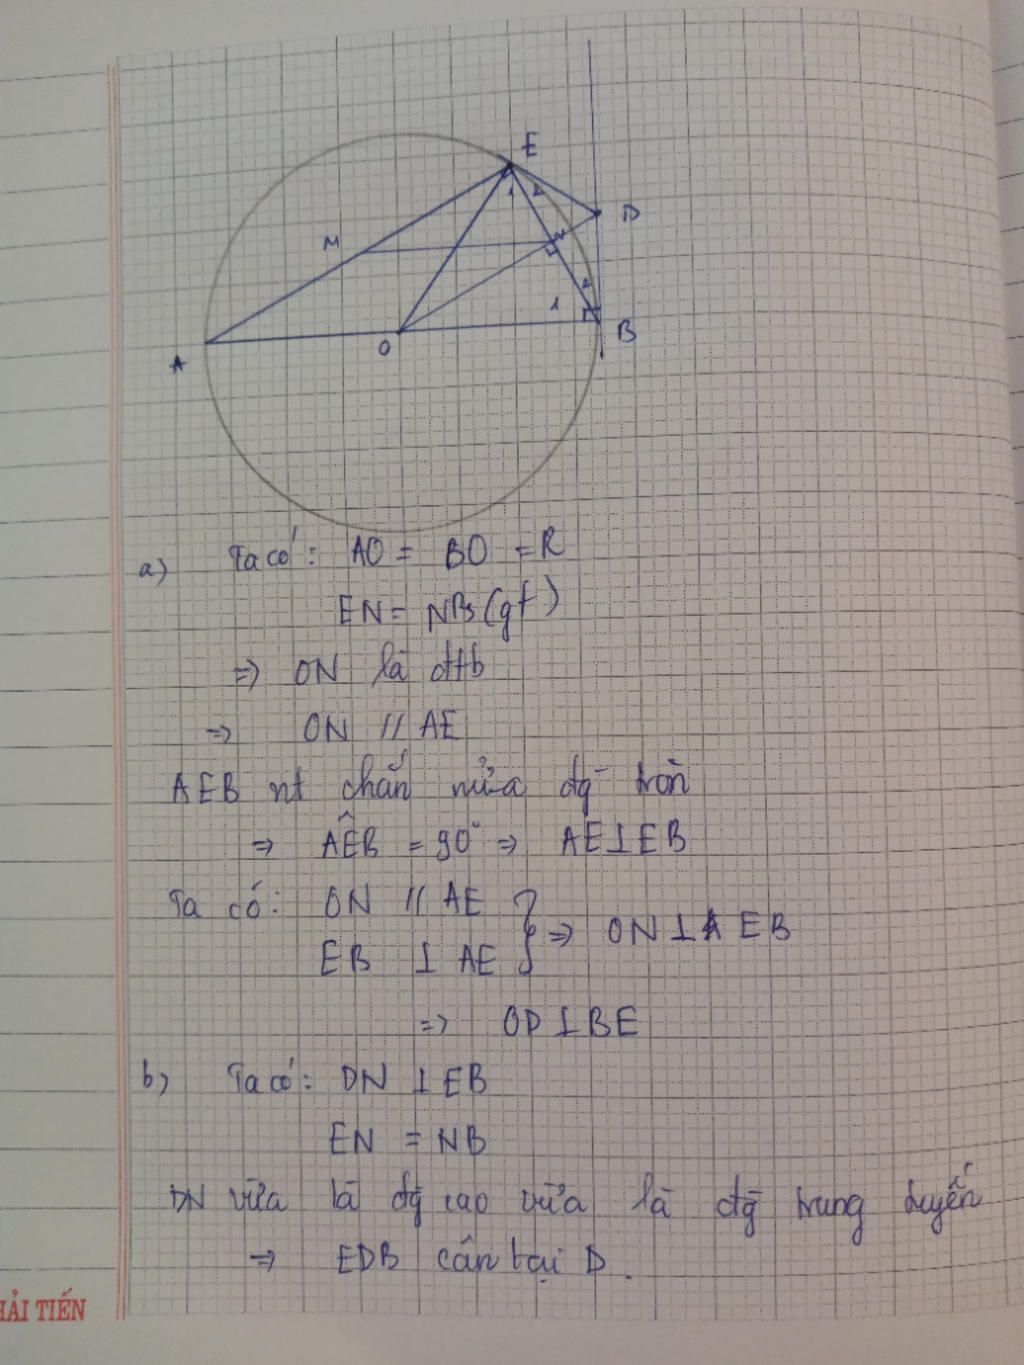 E
1 2
D
M
N
2
1
A
O
B
a) Ta có: AO = BO = R
EN = NB (gt)
=> ON là đtb
=> ON // AE
AEB nt chắn nửa đg tròn
=> AÊB = 90° => AE⊥EB
Ta có: ON // AE
} => ON ⊥ EB
EB ⊥ AE
=> OD⊥BE
b) Ta có: DN ⊥EB
EN = NB
DN vừa là đg cao vừa là đg trung tuyến
=> EDB cân tại D.
HẢI TIẾN